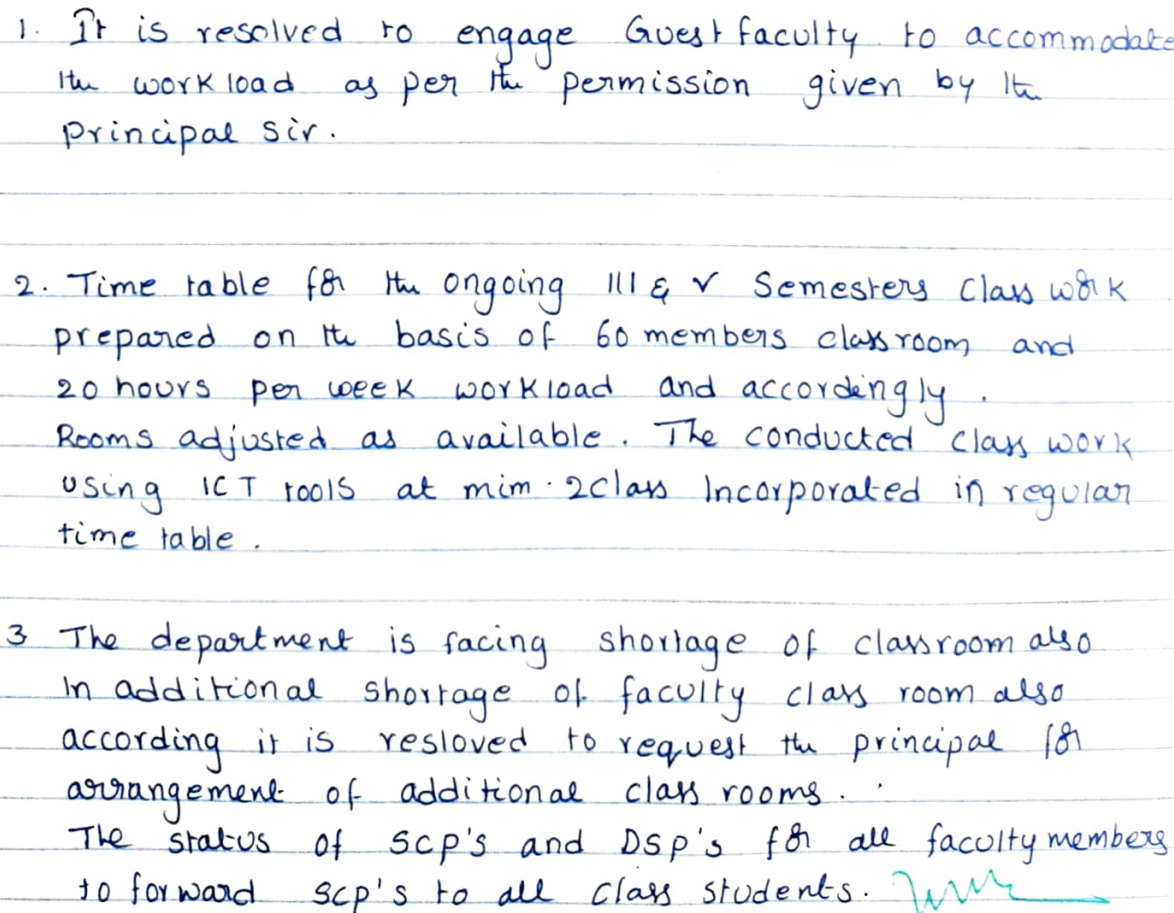 1. It is resolved to engage Guest faculty to accommodate
the work load as per the permission given by the
principal sir.
2. Time table for the ongoing III & V Semesters Class work
prepared on the basis of 60 members class room and
20 hours per week workload and accordingly.
Rooms adjusted as available. The conducted class work
using ICT tools at mim. 2class Incorporated in regular
time table.
3 The department is facing shortage of classroom also
In additional shortage of faculty class room also
according it is resloved to request the principal for
arrangement of additional class rooms.
The status of SCP's and DSP's for all faculty members
to forward SCP's to all Class students.